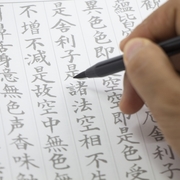 蘊皆
異色色即是空空即是色受
是舎利子是諸法空相不生
不増不減是故空中無色
舌身意無色声香味触